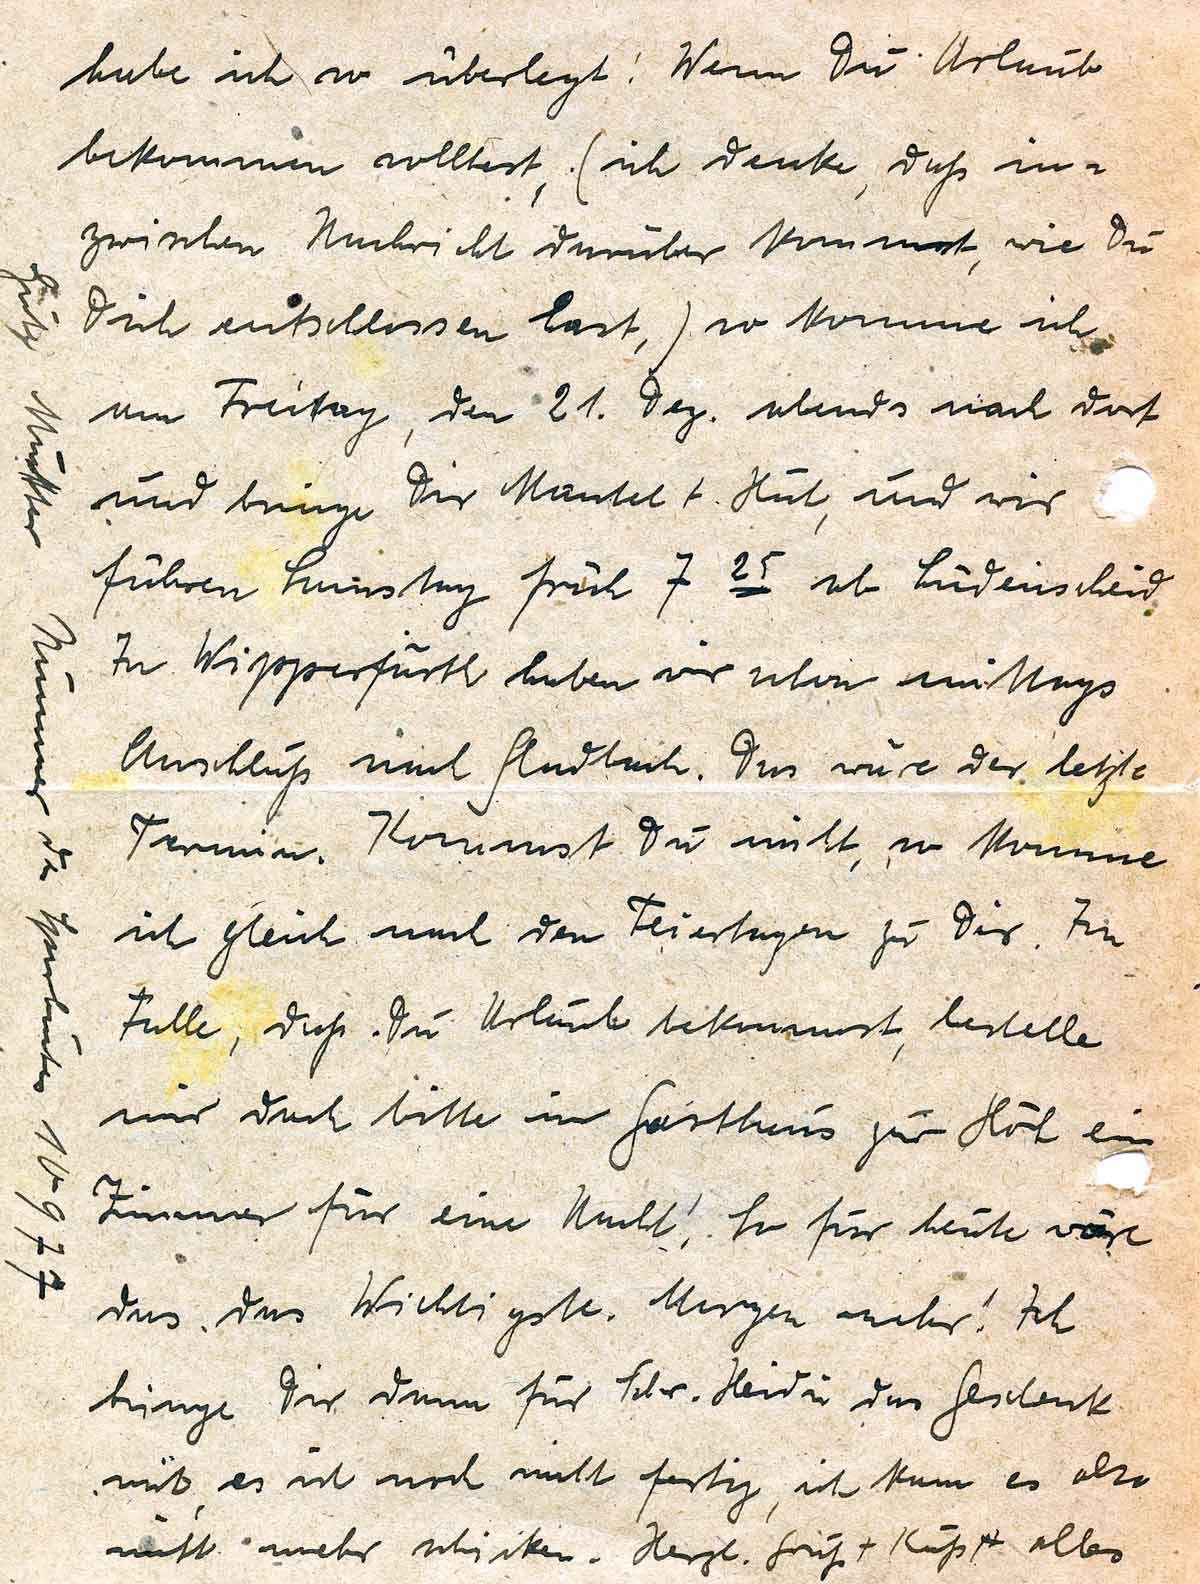 habe ich so überlegt! Wenn Du Urlaub
bekommen solltest, (ich denke, daß in=
zwischen Nachricht darüber kommt, wie Du
Dich entschlossen hast,) so komme ich
am Freitag, den 21. Dez. abends nach dort
und bringe Dir Mantel + Hut, und wir
führen Samstag früh 7 25 ab Lüdenscheid
In Wipperfürth haben wir schon mittags
Anschluß nach Gladbach. Das wäre der letzte
Termin. Kommst Du nicht, so komme
ich gleich nach den Feiertagen zu Dir. Im
Falle, daß Du Urlaub bekommst, bestelle
mir doch bitte im Gasthaus zur Höh ein
Zimmer für eine Nacht! So für heute wäre
das das Wichtigste. Morgen mehr! Ich
bringe Dir dann für Schw. Heidi das Geschenk
mit, es ist noch nicht fertig, ich kann es also
nicht mehr schicken. Herzl. Gruß + Kuß + alles
Mutter Nummer des Sparbuches 10977